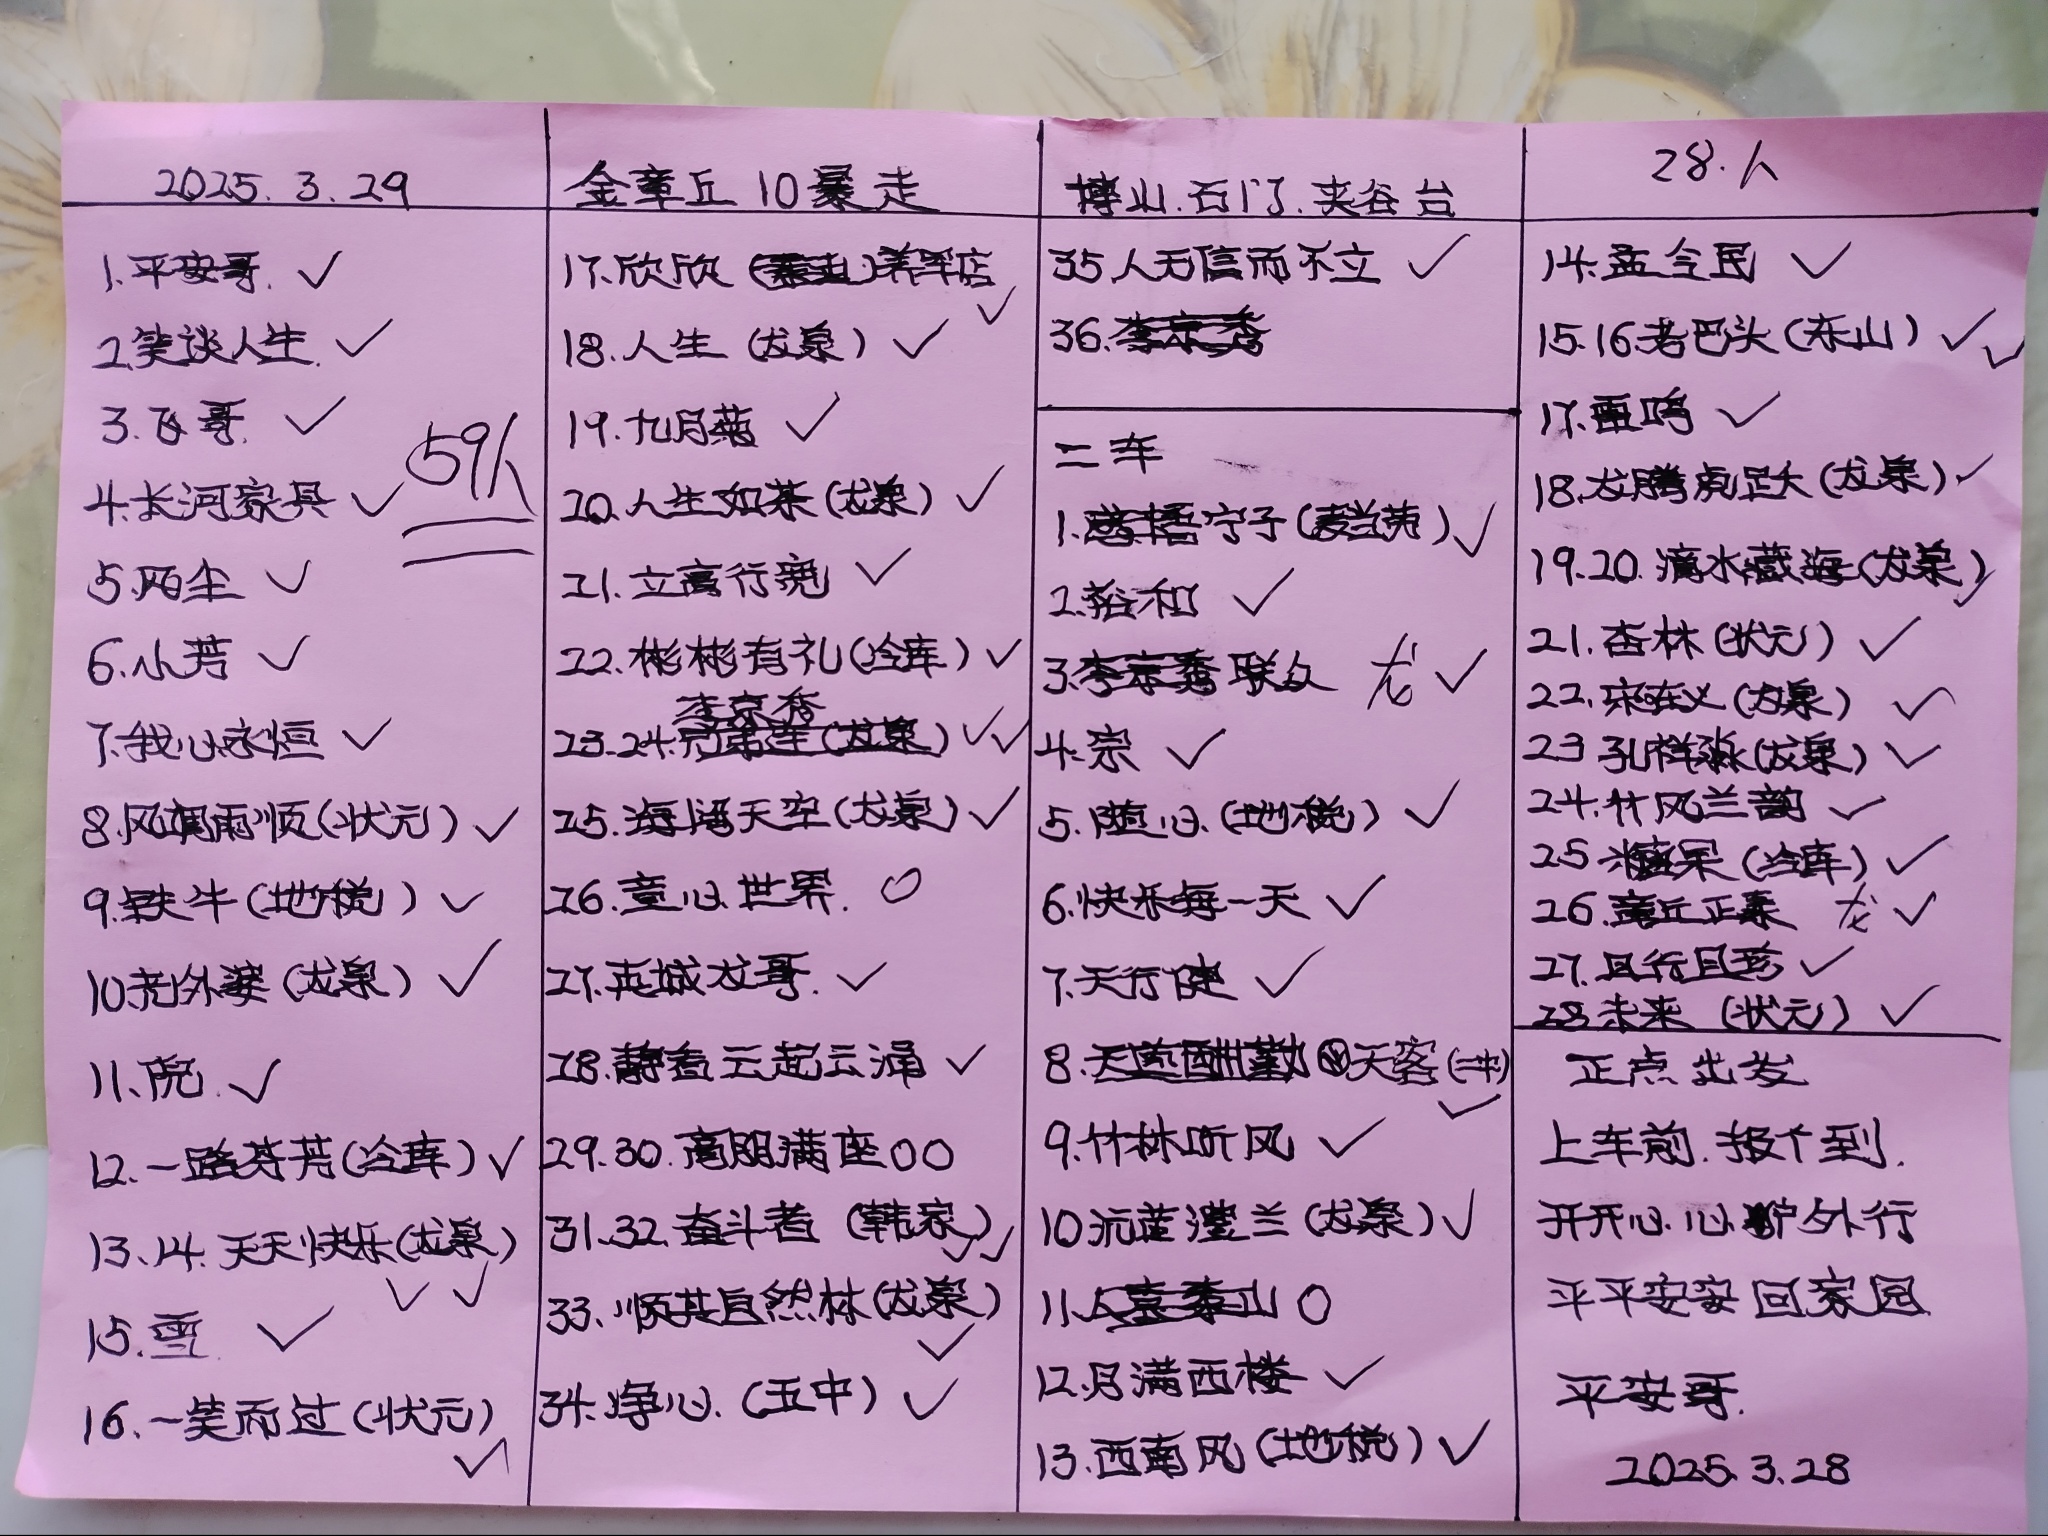 2025.3.29
金章丘10暴走
博山.石门.夹谷台
28.人
1.平安哥.✓
2.笑谈人生.✓
3.飞哥.✓
59人
4.长河家具✓
5.两尘✓
6.小芳✓
7.我心永恒✓
8.风调雨顺(状元)✓
9.铁牛(地税)✓
10.老外婆(龙泉)✓
11.倪.✓
12.一路芬芳(冷库)✓
13.14.天天快乐(龙泉)
✓✓
15.雪.✓
16.一笑而过(状元)
✓
17.欣欣( )养军店
✓
18.人生(龙泉)✓
19.九月菊✓
20.人生如茶(龙泉)✓
21.立高行
✓
22.彬彬有礼(冷库)✓
李京秀
23.24. (龙泉)✓✓
25.海阔天空(龙泉)✓
26.童心世界.○
27.龙哥.✓
28.静看云起云涌✓
29.30.高朋满座○○
31.32.奋斗者(韩家)
✓✓
33.顺其自然林(龙泉)
✓
34.净心.(五中)✓
35人无信而不立✓
36.李京秀
二车
1. 宁子(麦当劳)✓
2.裕和✓
3.李京秀联众 龙✓
4.宗✓
5.随心.(地税)✓
6.快乐每一天✓
7.天行健✓
8.天道酬勤 天客(二中)
✓
9.竹林听风✓
10沅蓝澧兰(龙泉)✓
11. 泰山○
12.月满西楼✓
13.西南风(地税)✓
14.孟令民✓
15.16.老巴头(东山)✓✓
17.雷鸣✓
18.龙腾虎跃(龙泉)✓
19.20.滴水藏海(龙泉)
✓
21.杏林(状元)✓
22.宋在义(龙泉)✓
23孔祥淼(龙泉)✓
24.竹风兰韵✓
25.糖果(冷库)✓
26.章丘正泰 龙✓
27.且行且珍✓
28.未来(状元)✓
正点出发
上车前.报个到.
开开心.心.驴外行
平平安安回家园.
平安哥.
2025.3.28